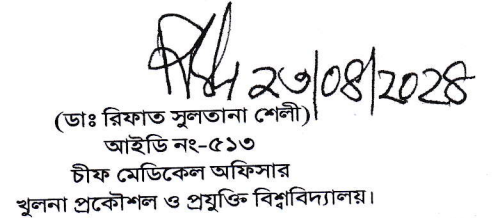 ২৩/০৪/২০২৪
(ডাঃ রিফাত সুলতানা শেলী)
আইডি নং-৫১৩
চীফ মেডিকেল অফিসার
খুলনা প্রকৌশল ও প্রযুক্তি বিশ্ববিদ্যালয়।